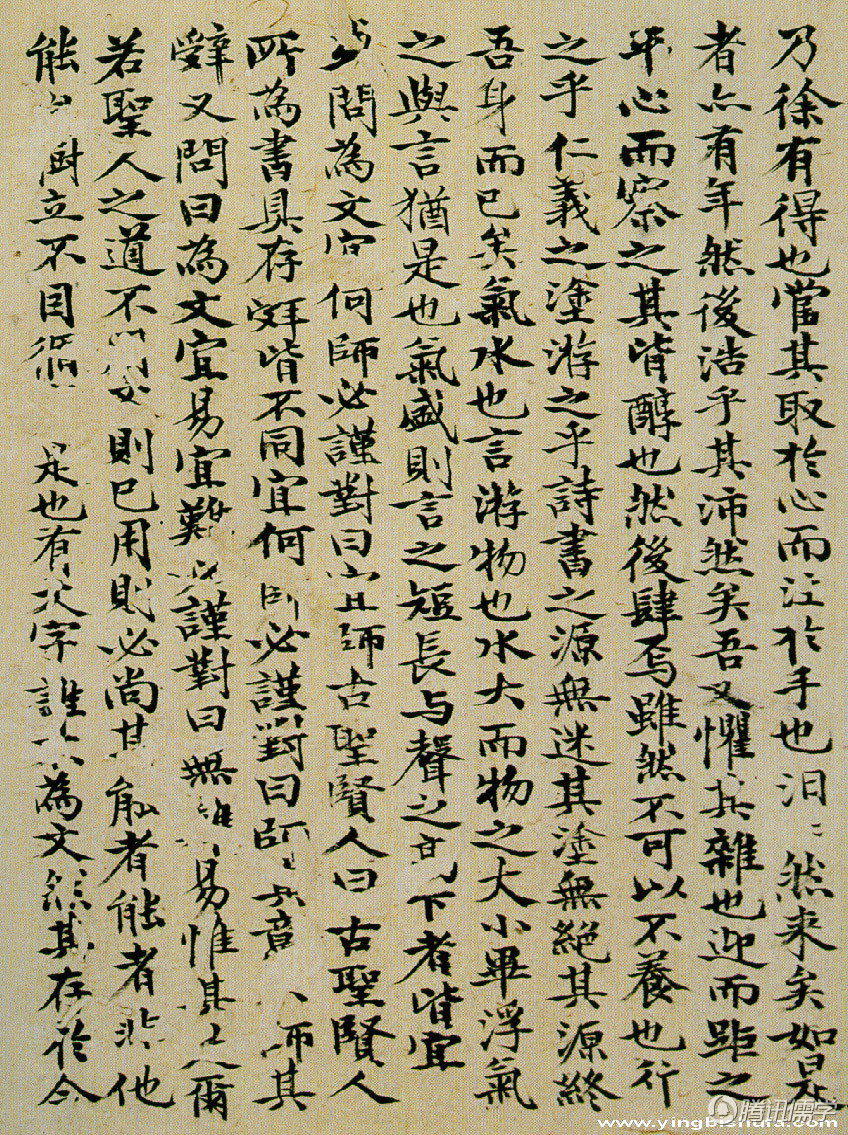 乃徐有得也當其取於心而注於手也汩〻然来矣如是
者亦有年然後浩乎其沛然矣吾又懼其雜也迎而距之
平心而察之其皆醇也然後肆焉雖然不可以不養也行
之乎仁義之塗游之乎詩書之源無迷其塗無絕其源終
吾身而已矣氣水也言游物也水大而物之大小畢浮氣
之與言猶是也氣盛則言之短長与聲之高下者皆宜
問為文宜何師必謹對曰宜師古聖賢人曰古聖賢人
所為書具存辤皆不同宜何師必謹對曰師其意師其
辤又問曰為文宜易宜難必謹對曰無難易惟其是爾
若聖人之道不用文則已用則必尚其能者能者非他
能自樹立不因循是也有文字誰不為文然其存於今
腾讯儒学
www.yingbishufa.com